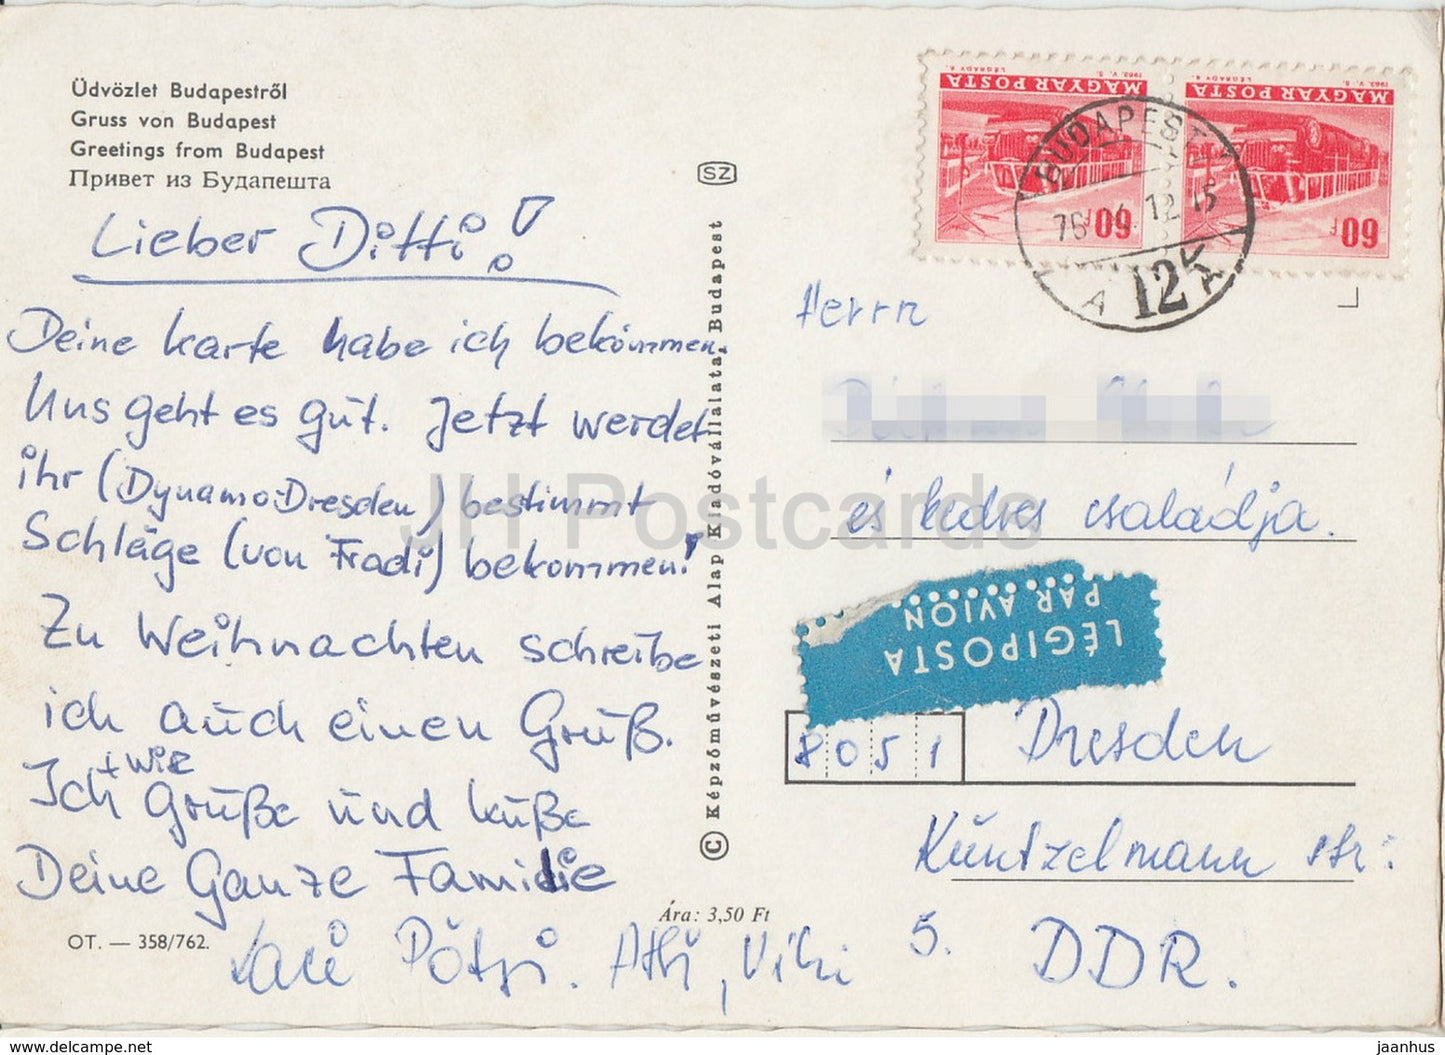 Üdvözlet Budapestről
Gruss von Budapest
Greetings from Budapest
Привет из Будапешта
Lieber Ditti!
Deine Karte habe ich bekommen.
Uns geht es gut. Jetzt werdet
ihr (Dynamo-Dresden) bestimmt
Schläge (von Fradi) bekommen!
Zu Weihnachten schreibe
ich auch einen Gruß.
+ wir
Ich Grüße und küße
Deine Ganze Familie
Laci Pötzi. Athi, Viki
OT. — 358/762.
Ára: 3,50 Ft
SZ
© Képzőművészeti Alap Kiadóvállalata, Budapest
MAGYAR POSTA
60f
MAGYAR POSTA
60f
BUDAPEST
125
Herrn
és kedves családja.
LÉGIPOSTA
PAR AVION
8051 Dresden
Küntzelmann str:
5. DDR.
JH Postcards
www.delcampe.net
jaanhus